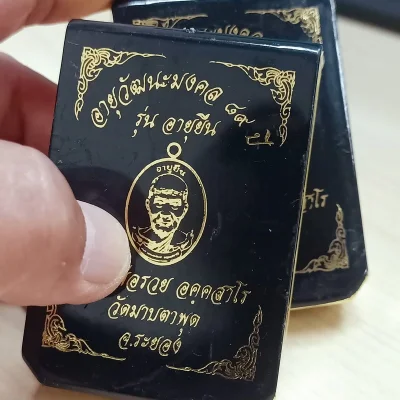 อายุวัฒนะมงคล
รุ่น อายุยืน
อายุยืน
อรวย อคฺคสาโร
วัดมาบตาพุด
จ.ระยอง
มงคล